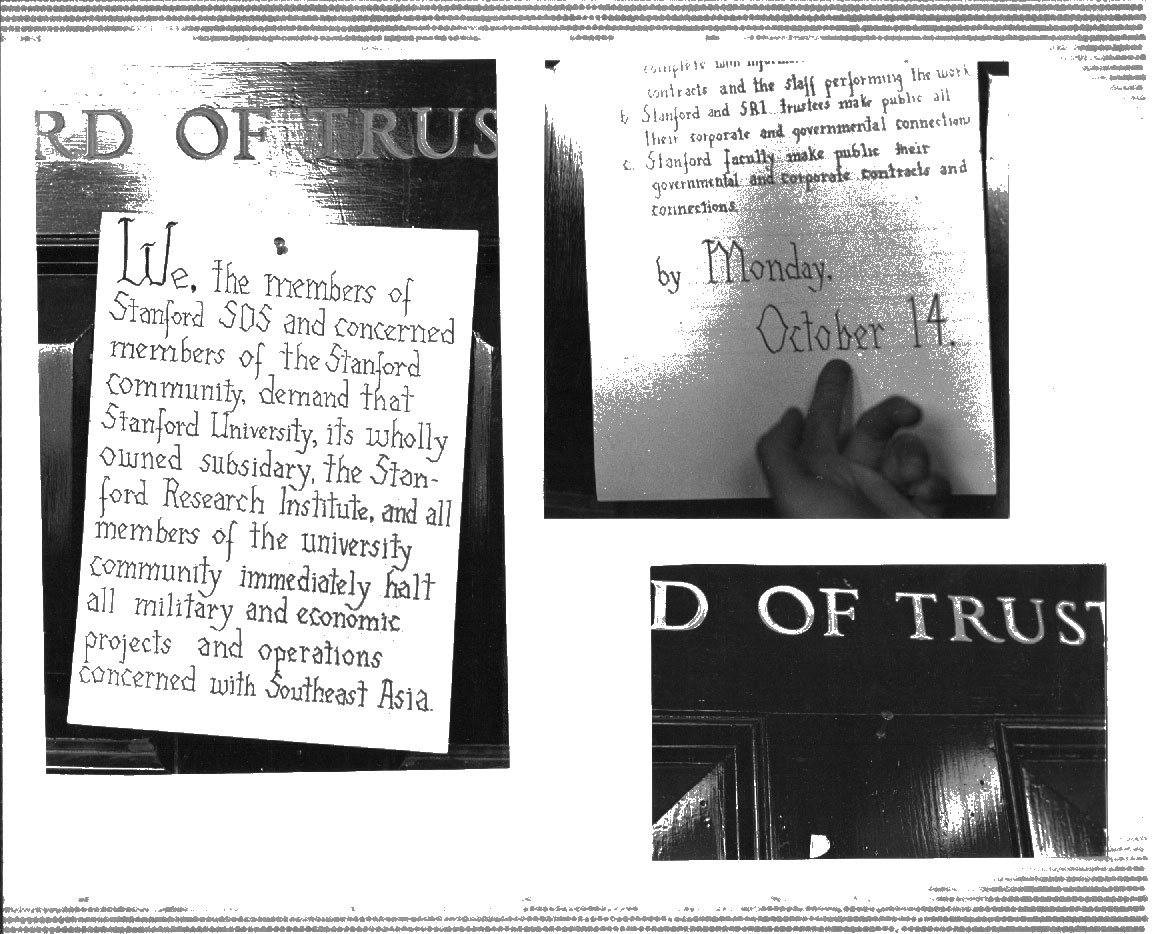 RD OF TRUS
We, the members of
Stanford SDS and concerned
members of the Stanford
community, demand that
Stanford University, its wholly
owned subsidary, the Stan-
ford Research Institute, and all
members of the university
community immediately halt
all military and economic
projects and operations
concerned with Southeast Asia.
complete with
contracts and the staff performing the work
b. Stanford and SRI trustees make public all
their corporate and governmental connections
c. Stanford faculty make public their
governmental and corporate contracts and
connections.
by Monday,
October 14.
D OF TRUST